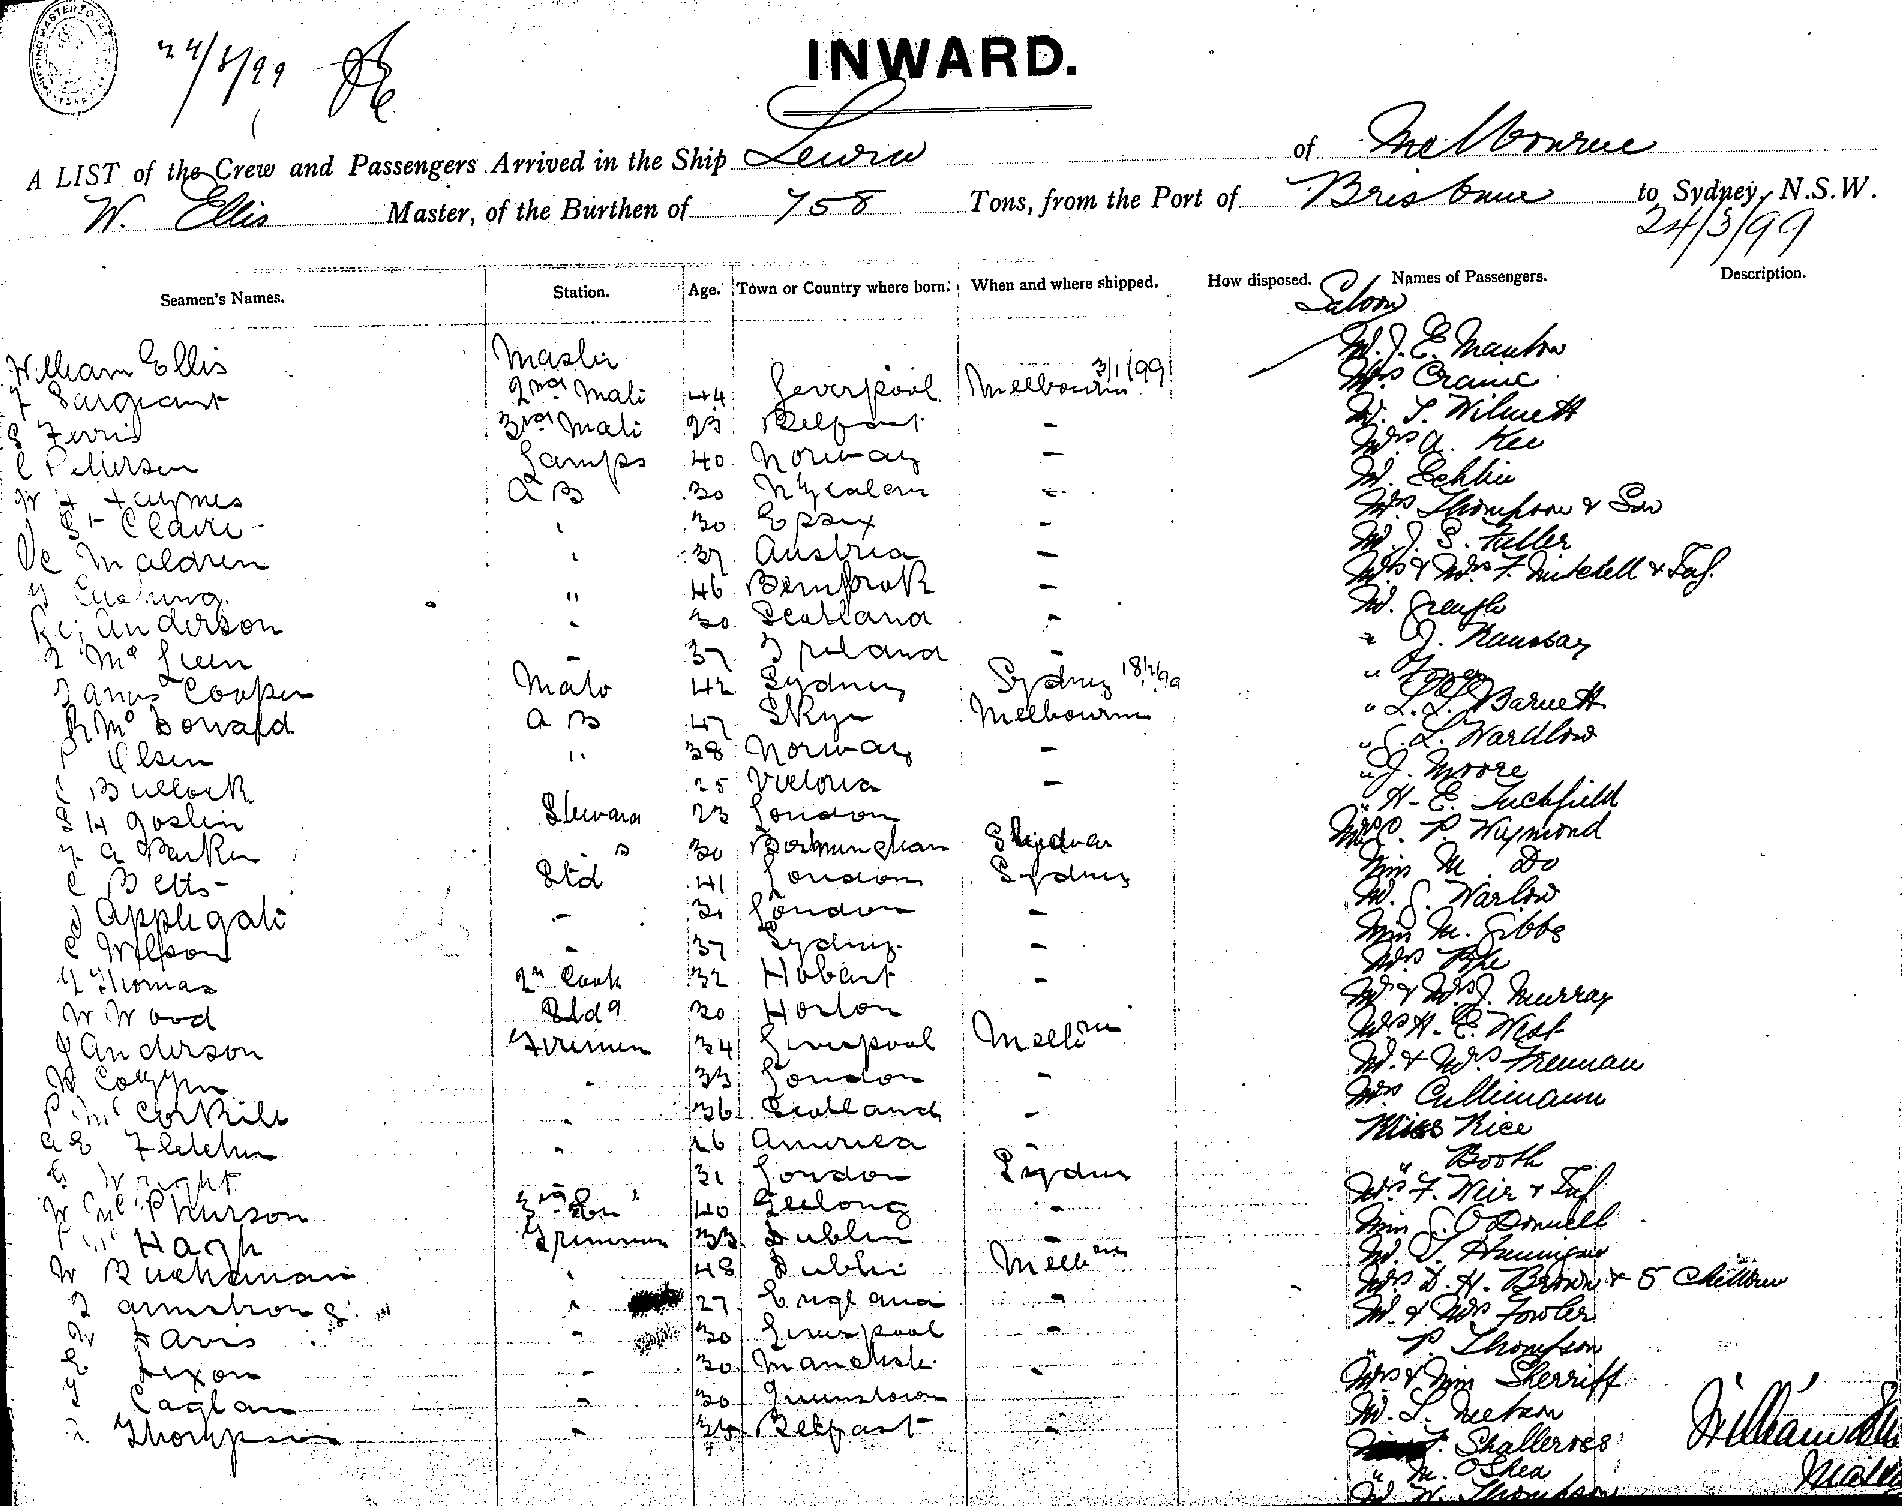 24/3/99
INWARD.
A LIST of the Crew and Passengers Arrived in the Ship of Melbourne
W. Ellis Master, of the Burthen of 758 Tons, from the Port of Brisbane to Sydney, N.S.W.
24/3/99
Seamen's Names. Station. Age. Town or Country where born. When and where shipped. How disposed. Names of Passengers. Description.
Saloon
William Ellis Master Mr. J. E. Manton
Sargeant 2nd Mate 44 Liverpool Melbourne 3/1/99 Mrs Craine
Ferris 3rd Mate 23 Belfast - Mr. S. Wilmett
C Petersen Lamps 40 Norway - Mrs A. Kee
W H Haymes A B 30 N Zealand - Mr. Echlin
St Claire " 30 Essex - Mrs Thompson & Son
De Maldren " 37 Austria - Mr. J. S. Fuller
Cushing " 46 Pembrok - Mr & Mrs F. Mitchell & Inf.
Anderson " 30 Scotland - Mr.
- 37 Ireland - " J. Ramsay
James Cooper Mate 42 Sydney Sydney "
R McDonald A B 47 Skye Melbourne " Barnett
Olsen " 38 Norway - " L. Wardlow
C Bullock 25 Victoria - " J. Moore
S H Goslin Steward 23 London " H. E. Tuchfield
A Parker 30 Birmingham Sydney Mrs C. P. Wymond
C Betts Std 41 London Sydney Miss M. Do
Applegate - 31 London - Mr. S. Warlow
C Wilson - 37 Sydney - Miss M. Gibbs
Thomas 2nd Cook 32 Hobart - Mrs Pye
W Wood 30 Horton - Mr & Mrs J. Murray
J Anderson Firemen 34 Liverpool Melbne Mrs H. E. West
- 33 London - Mr. & Mrs Freeman
P McCorkill " 36 Scotland - Mrs Cullimann
A E Fletcher " 26 America Miss Rice
Wright 31 London Sydney " Booth
W McPhurson 3rd En 40 Geelong - Mrs F. Weir & Inf
Hagh Firemen 33 Dublin - Miss S. O'Donnell
W Buchanan " 48 Dublin Melbne Mr. S. Hannigan
Armstrong " 27 England - Mrs D. H. Brown & 5 Children
Davis - 30 Liverpool - Mr. & Mrs Fowler
Dixon - 30 Manchest - " P. Thompson
Caglan - 30 Queenstown Mrs & Miss Sherriff
Thompson - Belfast - Mr. S. Nielson
F. Shallcross
" M. O'Shea
Mr W. Thompson
William